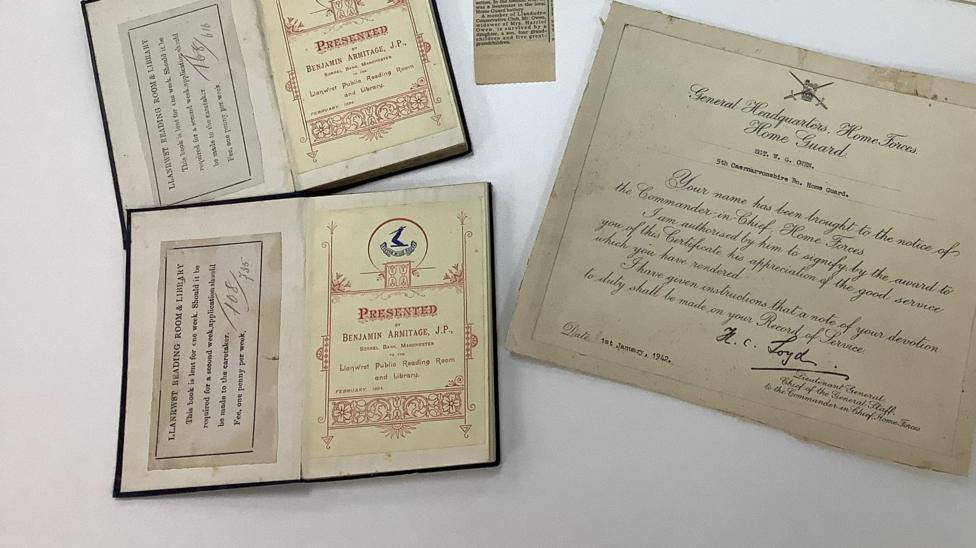 LLANRWST READING ROOM & LIBRARY
This book is lent for one week. Should it be
required for a second week, application should
be made to the caretaker.
Fee, one penny per week.
168/616
PRESENTED
BY
BENJAMIN ARMITAGE, J.P.,
SORREL BANK, MANCHESTER
TO THE
Llanrwst Public Reading Room
and Library.
FEBRUARY, 1894.
was a lieutenant in the local
Home Guard battery.
A member of Llandudno
Conservative Club, Mr. Owen,
widower of Mrs. Harriet
Owen, is survived by a
daughter, a son, four grand-
children and five great-
grandchildren.
General Headquarters, Home Forces.
Home Guard.
SGT. W. G. OWEN.
5th Caernarvonshire Bn. Home Guard.
Your name has been brought to the notice of
the Commander-in-Chief, Home Forces.
I am authorised by him to signify by the award to
you of this Certificate his appreciation of the good service
which you have rendered.
I have given instructions that a note of your devotion
to duty shall be made on your Record of Service.
Date 1st January, 1942.
H. C. Loyd
Lieutenant General.
Chief of the General Staff,
to the Commander-in-Chief, Home Forces
LLANRWST READING ROOM & LIBRARY
This book is lent for one week. Should it be
required for a second week, application should
be made to the caretaker.
Fee, one penny per week.
108/735
PRESENTED
BY
BENJAMIN ARMITAGE, J.P.,
SORREL BANK, MANCHESTER
TO THE
Llanrwst Public Reading Room
and Library.
FEBRUARY, 1894.